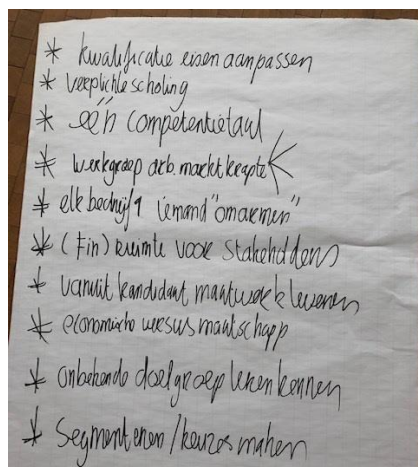 * kwalificatie eisen aanpassen
* verplichte scholing
* één competentietaal
* werkgroep arb.marktkrapte
* elk bedrijf 1 iemand "omarmen"
* (Fin) ruimte voor stakeholders
* vanuit kandidaat maatwerk leveren
* economische versus maatschapp
* onbekende doelgroep leren kennen
* Segmenteren / keuzes maken